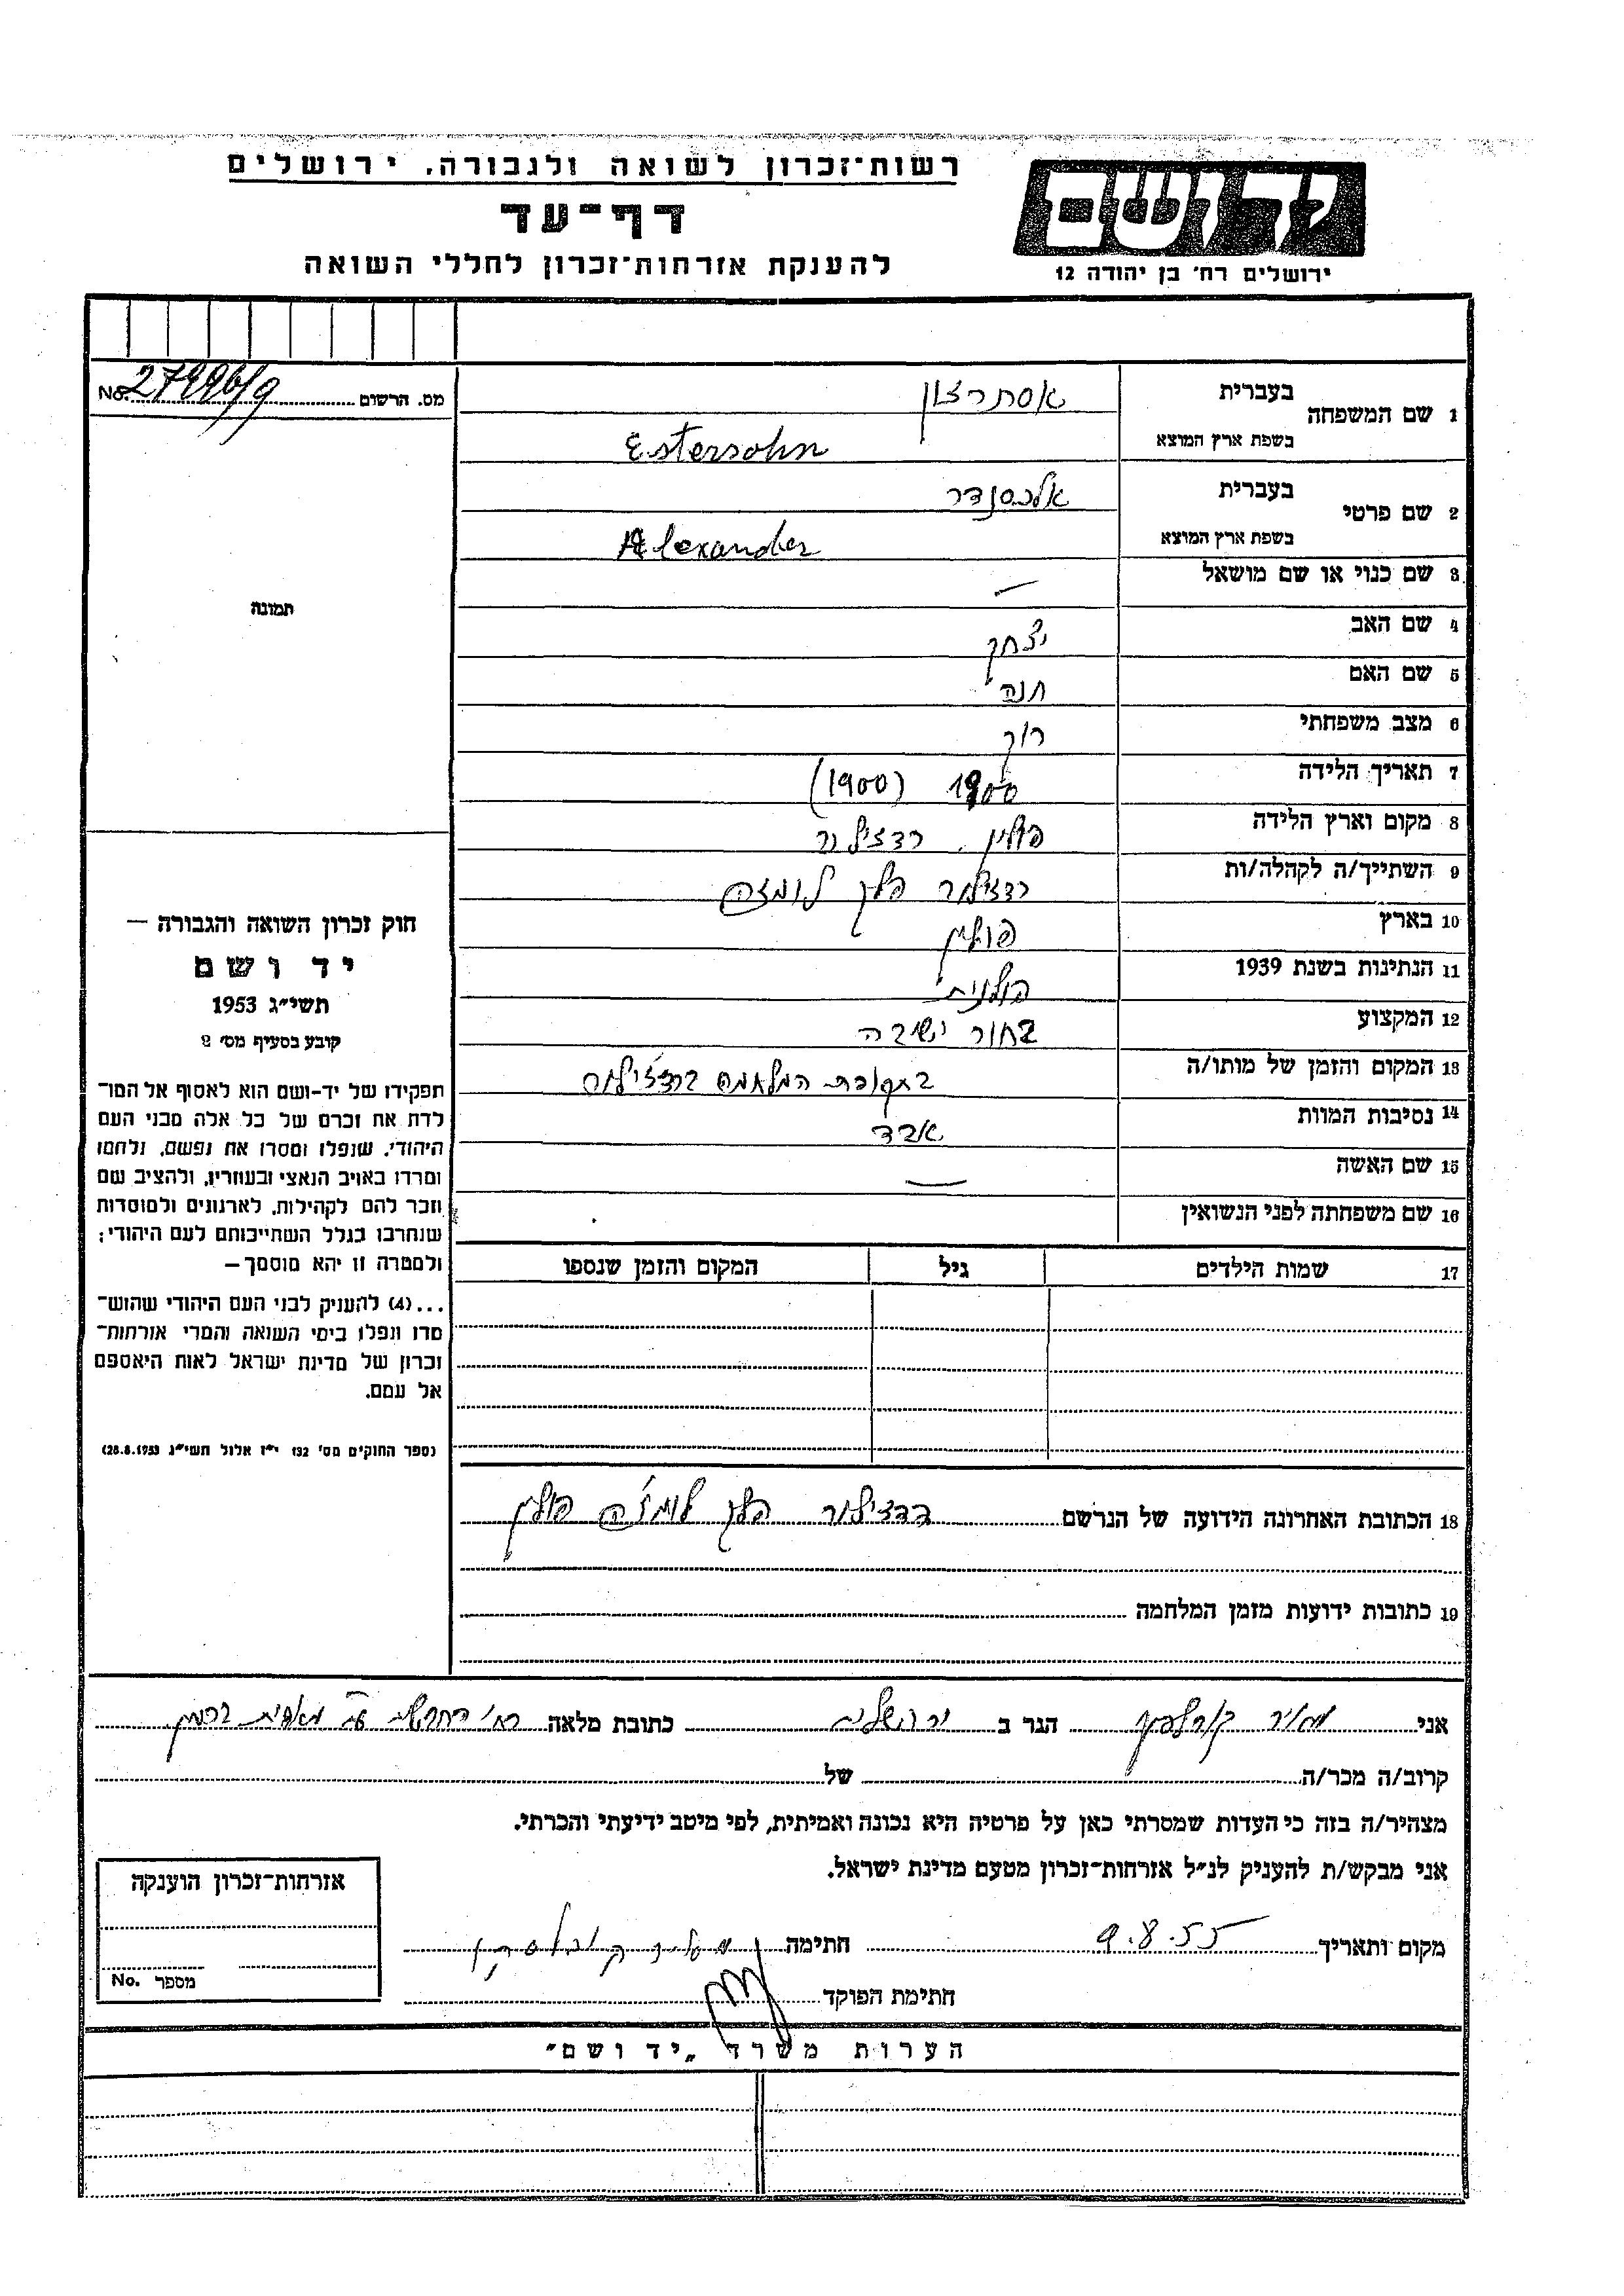 רשות־זכרון לשואה ולגבורה, ירושלים
יד ושם
דף־עד
להענקת אזרחות־זכרון לחללי השואה
ירושלים רח׳ בן יהודה 12
מס. הרשום No.
1 שם המשפחה
בעברית
אסתרזון
בשפת ארץ המוצא
Estersohn
2 שם פרטי
בעברית
אלכסנדר
בשפת ארץ המוצא
Alexander
3 שם כנוי או שם מושאל —
4 שם האב יצחק
5 שם האם חנה
6 מצב משפחתי רוק
7 תאריך הלידה 1900 (1900)
8 מקום וארץ הלידה פולין, רדזילוב
9 השתייך/ה לקהלה/ות רדזילוב פלך לומזה
10 בארץ פולין
11 הנתינות בשנת 1939 פולנית
12 המקצוע בחור ישיבה
13 המקום והזמן של מותו/ה בתקופת המלחמה ברדזילוב
14 נסיבות המוות אבד
15 שם האשה —
16 שם משפחתה לפני הנשואין
17 שמות הילדים גיל המקום והזמן שנספו
18 הכתובת האחרונה הידועה של הנרשם רדזילוב פלך לומז׳ה פולין
19 כתובות ידועות מזמן המלחמה
תמונה
חוק זכרון השואה והגבורה —
יד ושם
תשי״ג 1953
קובע בסעיף מס׳ 2
תפקידו של יד-ושם הוא לאסוף אל המו־
לדת את זכרם של כל אלה מבני העם
היהודי, שנפלו ומסרו את נפשם, נלחמו
ומרדו באויב הנאצי ובעוזריו, ולהציב שם
וזכר להם לקהילות, לארגונים ולמוסדות
שנחרבו בגלל השתייכותם לעם היהודי;
ולמטרה זו יהא מוסמך —
...(4) להעניק לבני העם היהודי שהוש־
מדו ונפלו בימי השואה והמרי אזרחות־
זכרון של מדינת ישראל לאות היאספם
אל עמם.
(ספר החוקים מס׳ 132 י״ז אלול תשי״ג 28.8.1953)
אני מאיר הגר ב ירושלים כתובת מלאה רח׳
קרוב/ה מכר/ה של
מצהיר/ה בזה כי העדות שמסרתי כאן על פרטיה היא נכונה ואמיתית, לפי מיטב ידיעתי והכרתי.
אני מבקש/ת להעניק לנ״ל אזרחות־זכרון מטעם מדינת ישראל.
מקום ותאריך 9.8.55 חתימה
חתימת הפוקד
אזרחות־זכרון הוענקה
מספר No.
הערות משרד „יד ושם״